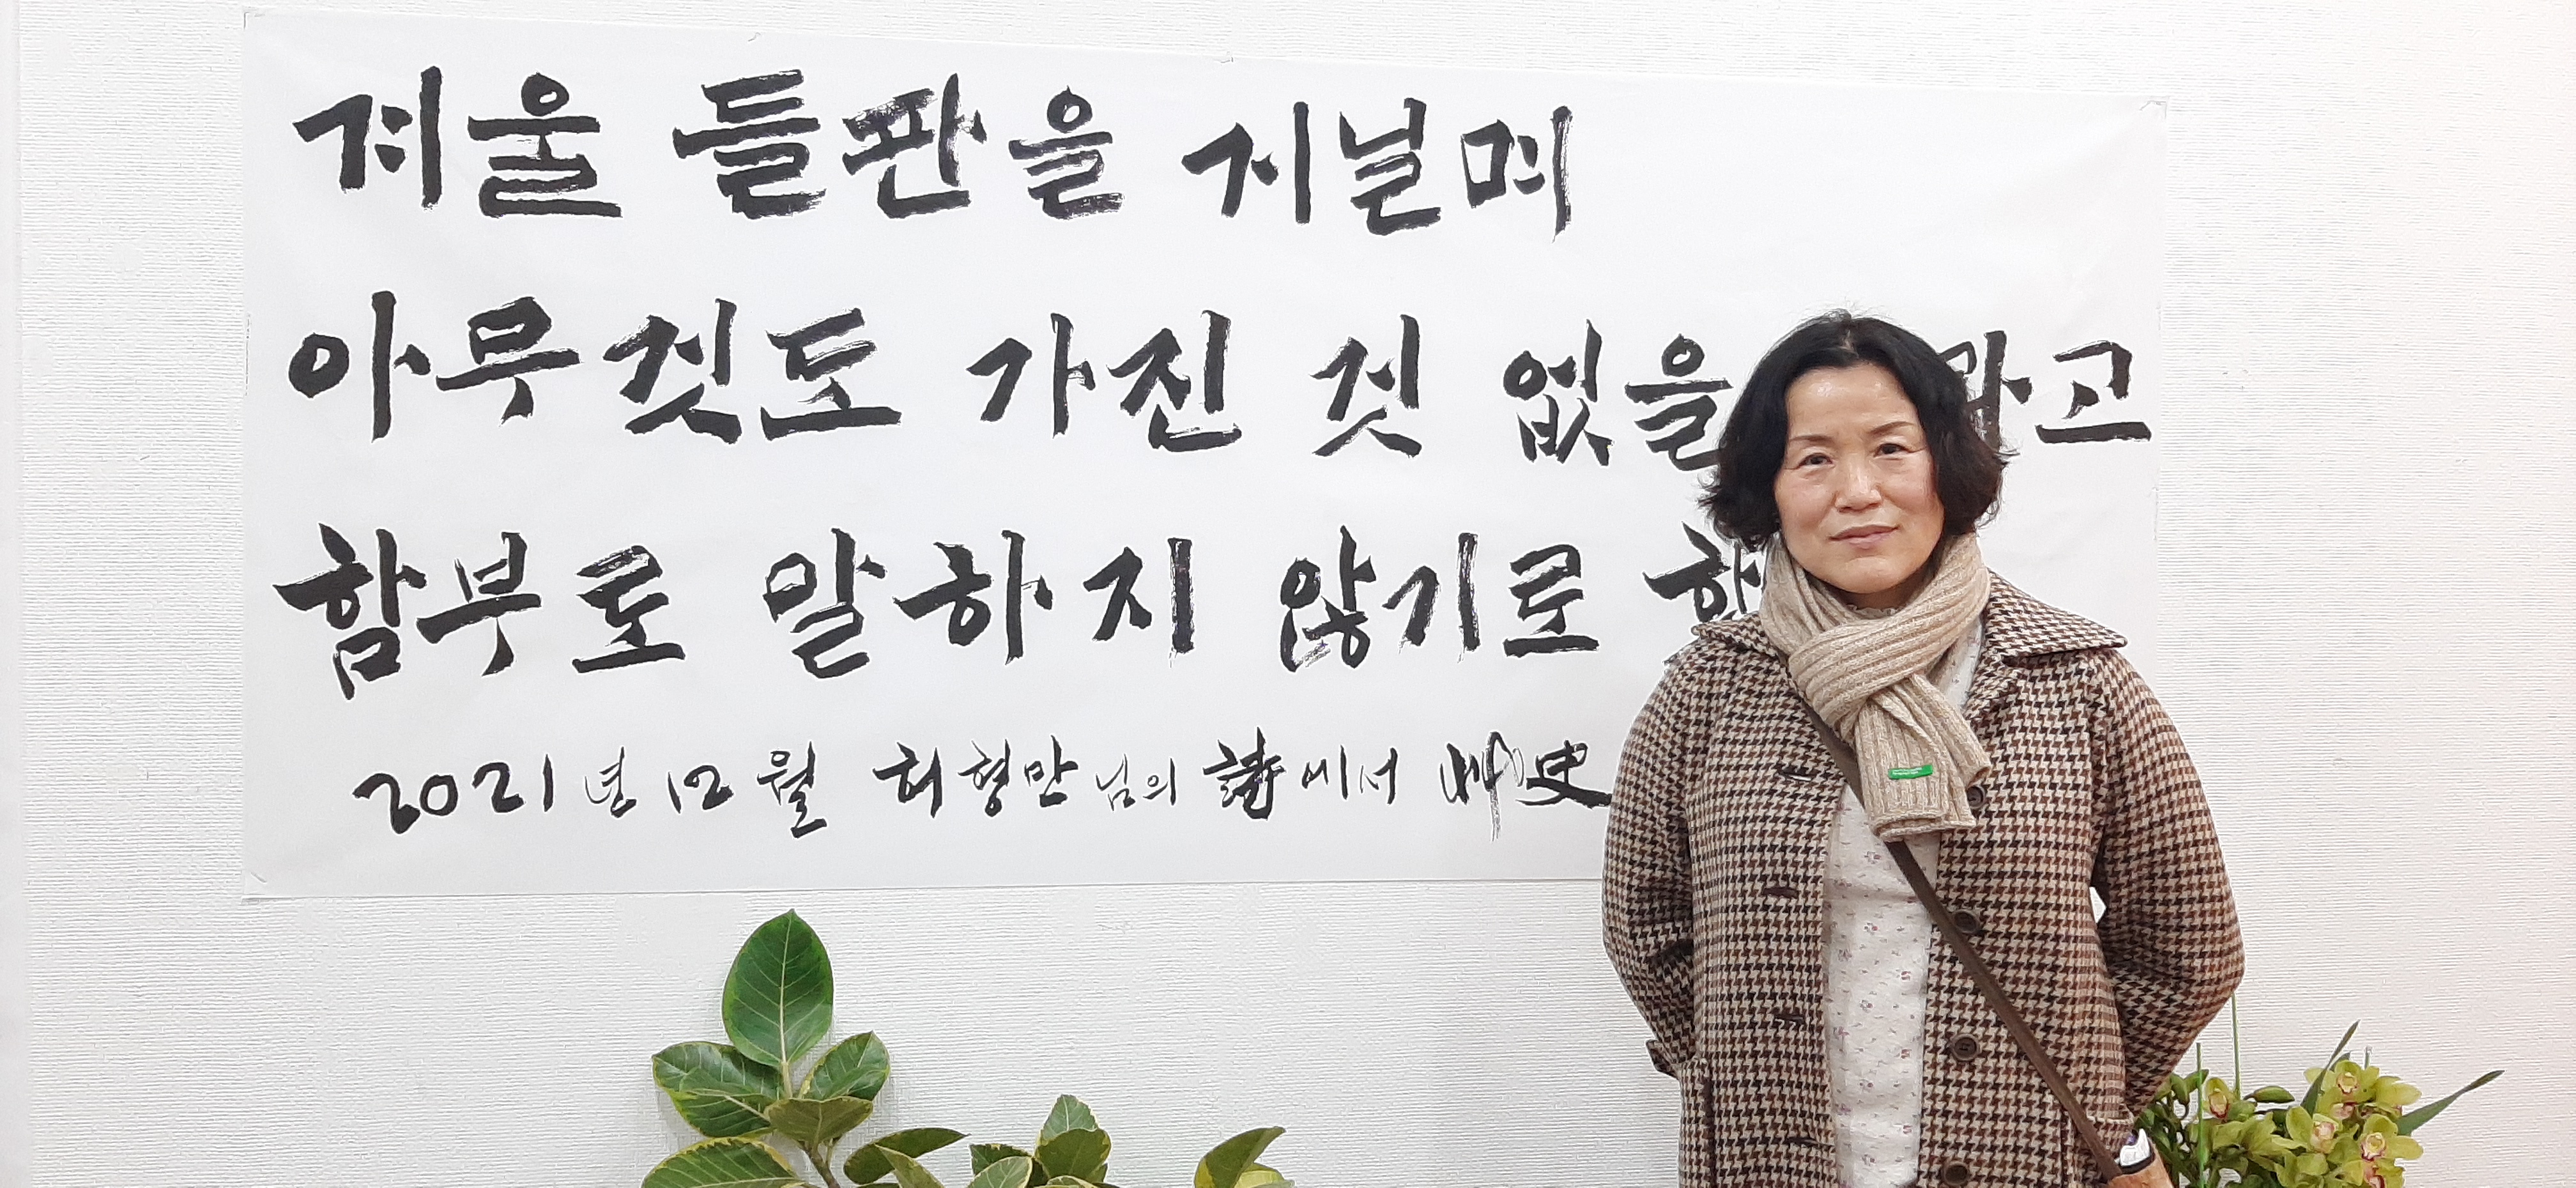 겨울 들판을 거닐며
아무것도 가진 것 없을 라고
함부로 말하지 않기로
2021년 12월 허형만님의 詩에서 艸史